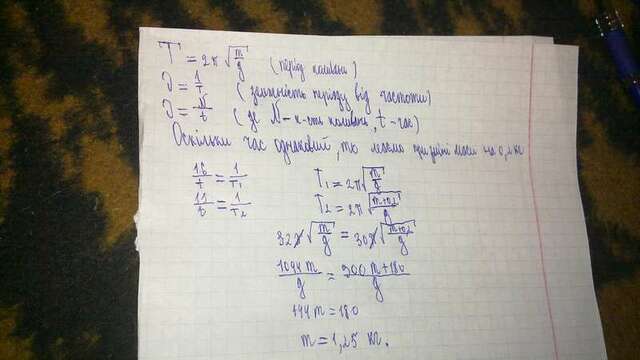 T = 2π √m/g (період коливань)
ν = 1/T (залежність періоду від частоти)
ν = N/t (де N - к-сть коливань, t - час)
Оскільки час однаковий, то маємо маси на 0,2 кг
16/t = 1/T₁ T₁ = 2π√m/g
11/t = 1/T₂ T₂ = 2π√m+0,2/g
32 √m/g = 30 √m+0,2/g
1044 m/g = 900 m+180/g
144 m = 180
m = 1,25 кг.